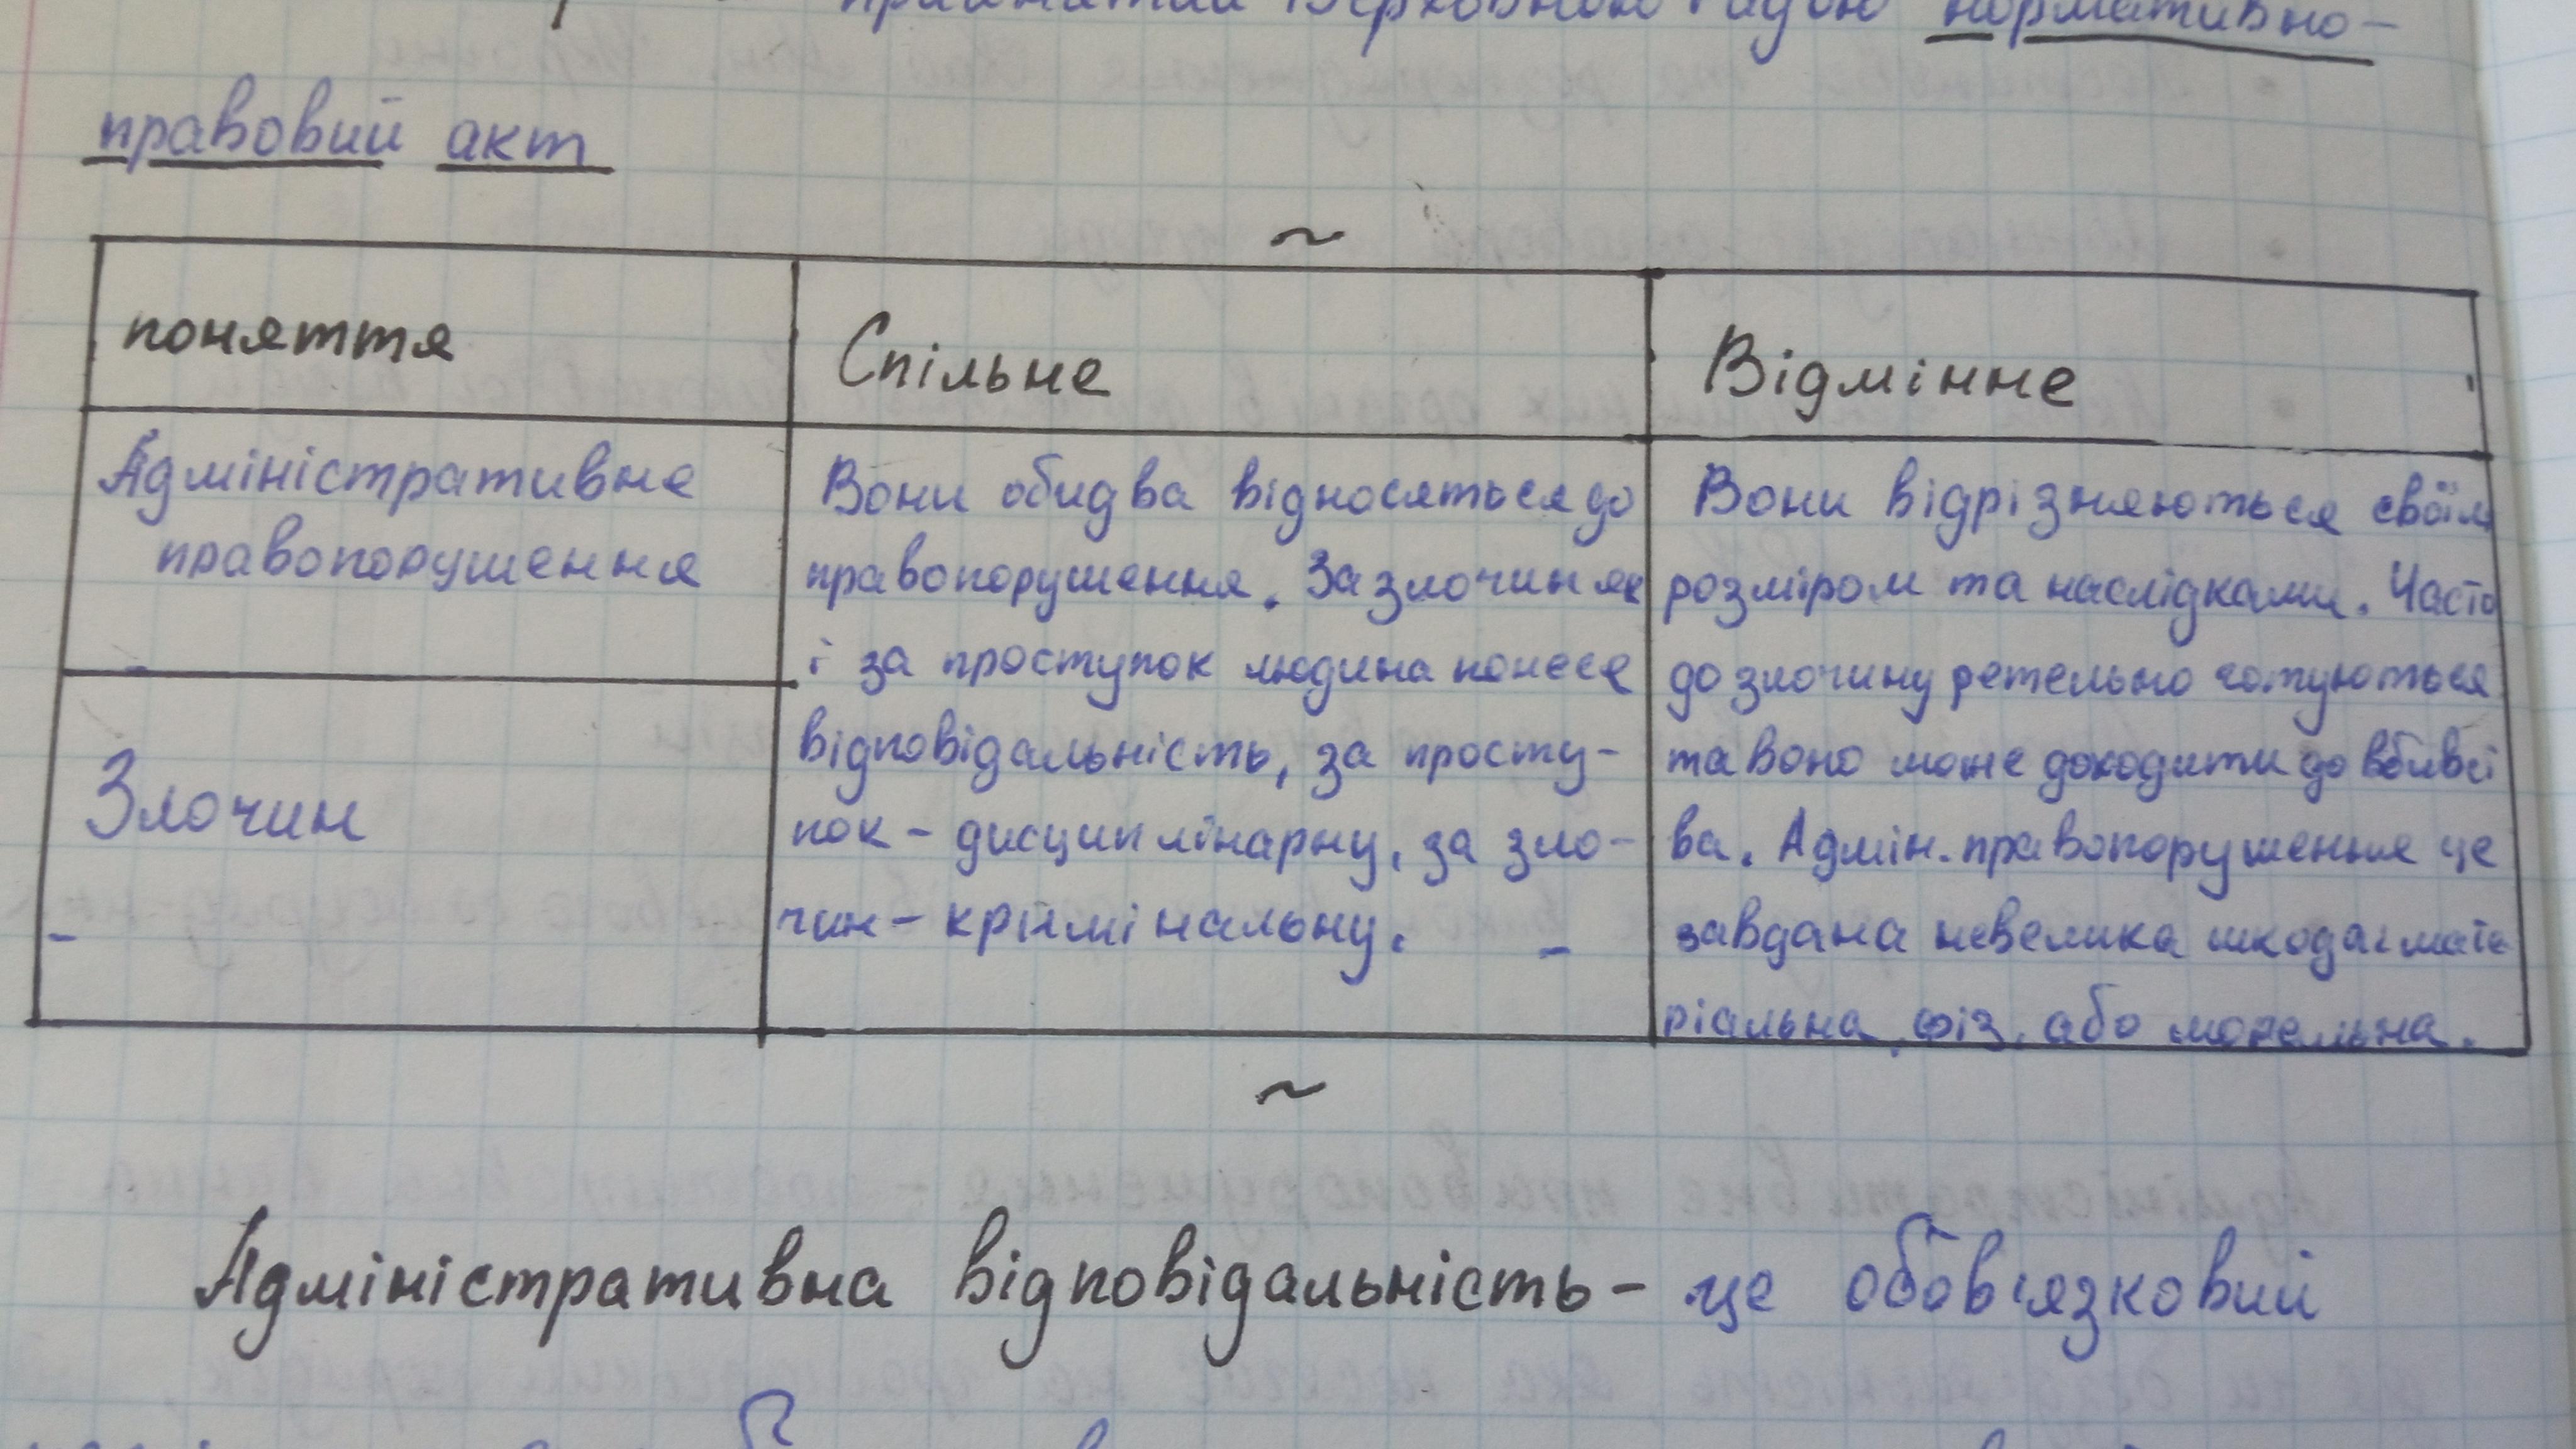 прийнятий Верховною Радою нормативно-
правовий акт
~
поняття
Спільне
Відмінне
Адміністративне
правопорушення
Злочин
Вони обидва відносяться до
правопорушення. За злочин як
і за проступок людина понесе
відповідальність, за просту-
пок - дисциплінарну, за зло-
чин - крімінальну.
Вони відрізняються своїм
розміром та наслідками. Часто
до злочину ретельно готуються
та воно може доходити до вбивс
ва. Адмін. правопорушення це
завдана невелика шкода: мате
ріальна, фіз. або моральна.
~
Адміністративна відповідальність - це обов'язковий